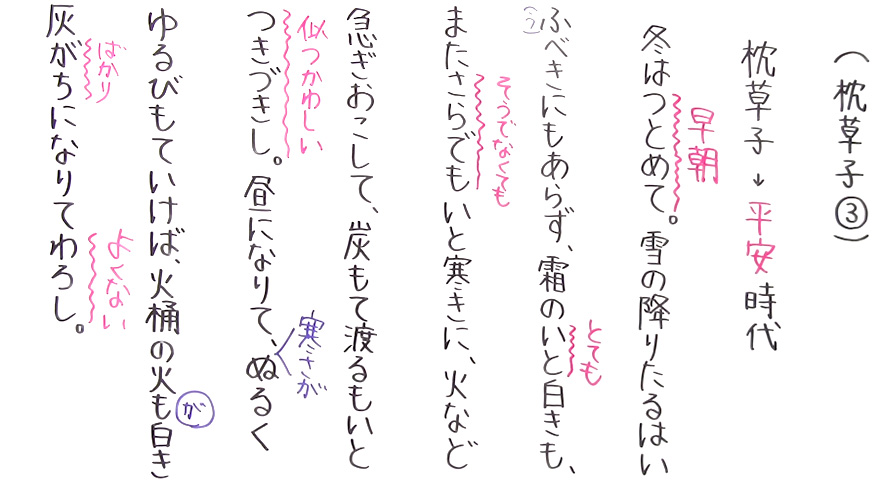 (枕草子③)
枕草子→平安時代
早朝
冬はつとめて。雪の降りたるはい
とても
ふべきにもあらず、霜のいと白きも、
(う)
そうでなくても
またさらでもいと寒きに、火など
急ぎおこして、炭もて渡るもいと
似つかわしい
つきづきし。昼になりて、ぬるく
寒さが
ゆるびもていけば、火桶の火も白き
が
ばかり
灰がちになりてわろし。
よくない